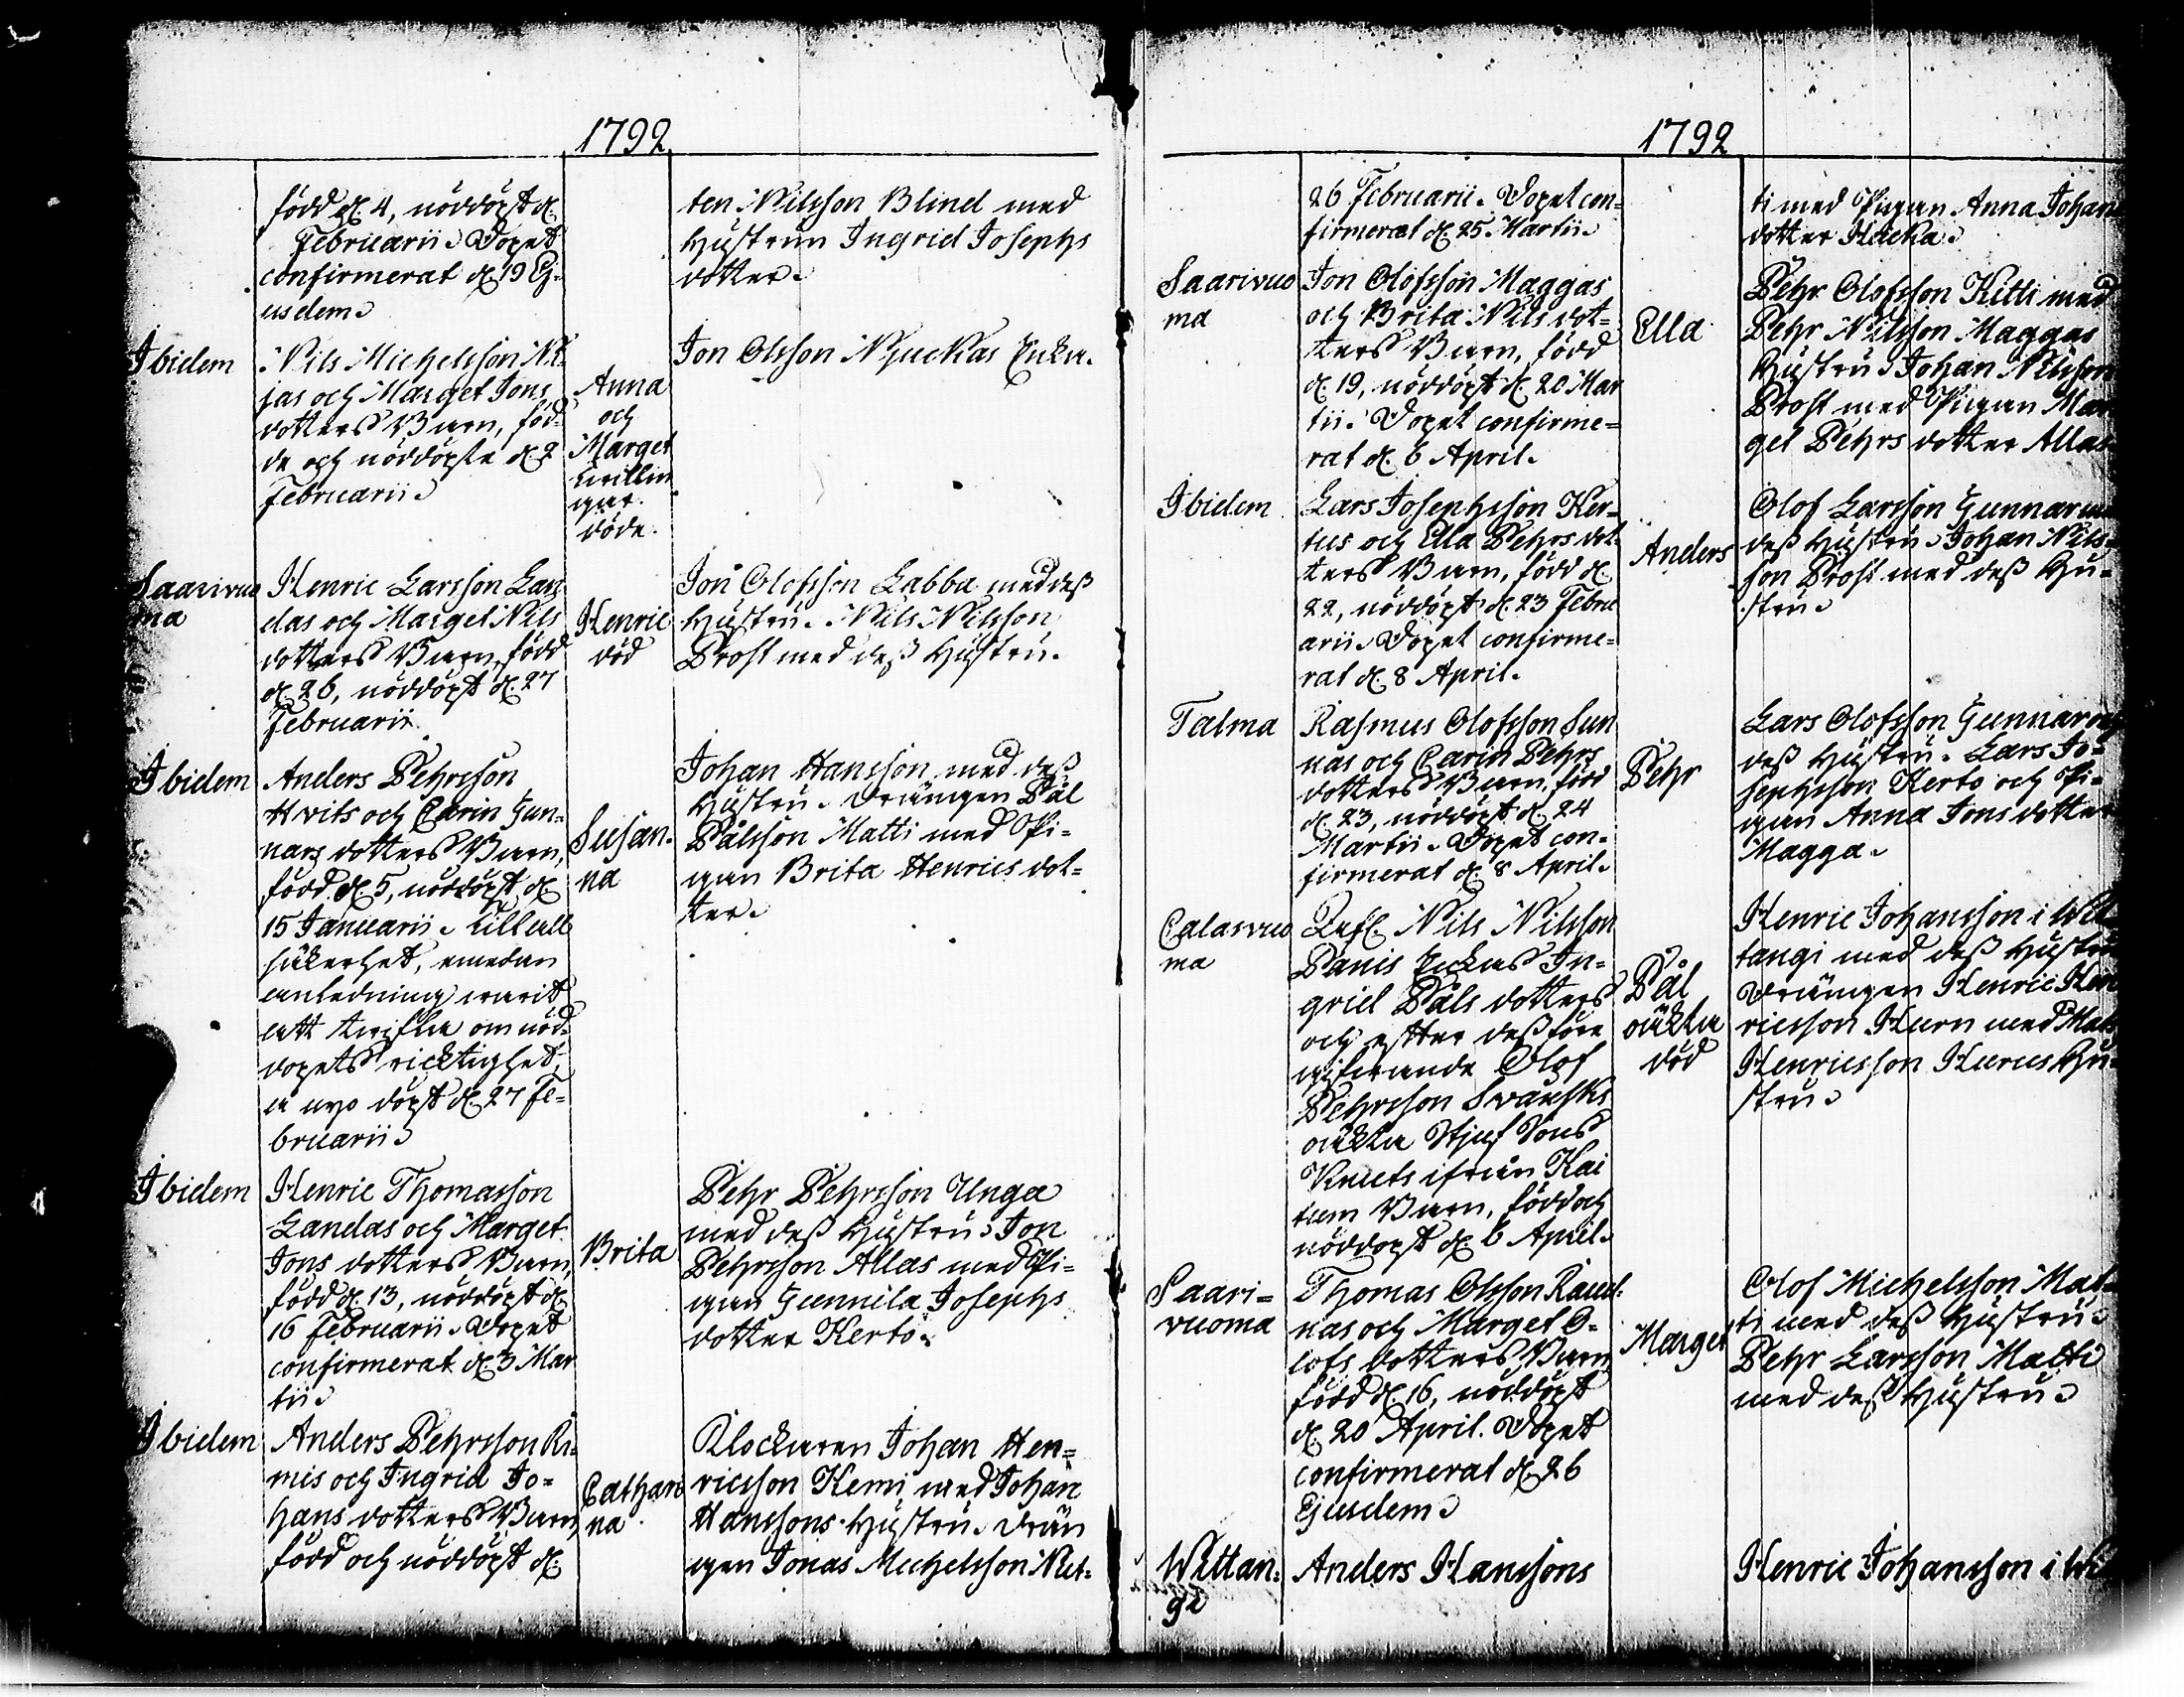 1792
född d. 4, nöddöpt d.
Februarii. Dopet
confirmerat d. 19 Ej-
usdem.
ten Nilsson Blind med
Hustrun Ingrid Josephs
dotter.
Ibidem
Nils Michelsson Ni-
jas och Marget Jons
dotters Barn, föd-
de och nöddöpte d. 2
Februarii.
Anna
och
Marget
tvillin
gar.
döde.
Jon Olsson Njuckas Enka.
Saarivuo
ma
Henric Larsson Lan
das och Marget Nils
dotters Barn, född
d. 26, nöddöpt d. 27
Februarii
Henric
död
Jon Olofsson Labba med dess
Hustru. Nils Nilsson
Prost med dess Hustru.
Ibidem
Anders Pehrsson
Hvits och Carin Gun-
nars dotters Barn,
född d. 5, nöddöpt d.
15 Januarii. Till all
säkerhet, emedan
anledning warit
att twifla om nöd-
dopets ricktighet,
a nyo döpt d. 27 Fe-
bruarii.
Susan-
na
Johan Hansson med dess
Hustru. Drängen Pål
Pålsson Matti med Pi-
gan Brita Henrics dot-
ter.
Ibidem
Henric Thomasson
Landas och Marget
Jons dotters Barn,
född d. 13, nöddöpt d.
16 Februarii. Dopet
confirmerat d. 3 Mar
tii.
Brita
Pehr Pehrsson Unga
med dess Hustru. Jon
Pehrsson Allas med Pi-
gan Gunnila Josephs
dotter Kerto.
Ibidem
Anders Pehrsson Ri-
mis och Ingrid Jo-
hans dotters Barn
född och nöddöpt d.
Cathari
na
Klockaren Johan Hen-
ricsson Kemi med Johan
Hanssons Hustru. Drän
gen Jonas Michelsson Nut-
1792
26 Februarii. Dopet con-
firmerat d. 25 Martii.
ti med Pigan Anna Johans
dotter Hacka.
Saarivuo
ma
Jon Olofsson Maggas
och Brita Nils dot-
ters Barn, född
d. 19, nöddöpt d. 20 Mar
tii. Dopet confirme-
rat d. 6 April.
Ella
Pehr Olofsson Kitti med
Pehr Nilsson Maggas
Hustru. Johan Nilsson
Prost med Pigan Mar
get Pehrs dotter Allas
Ibidem
Lars Josephsson Ker-
tus och Ella Pehrs dot-
ters Barn, född d.
22, nöddöpt d. 23 Febru
arii. Dopet confirme-
rat d. 8 April.
Anders
Olof Larsson Gunnar med
dess Hustru. Johan Nils-
son Prost med dess Hu-
stru.
Talma
Rasmus Olofsson Sun
nas och Carin Pehrs
dotters Barn, född
d. 23, nöddöpt d. 24
Martii. Dopet con-
firmerat d. 8 April.
Pehr
Lars Olofsson Gunnar och
dess Hustru. Lars Jo-
sephsson Kerto och Pi-
gan Anna Jons dotter
Magga.
Calasvuo
ma
Nils Nilsson
Panis Enkas In-
grid Påls dotters
och efter dess före
gifwande Olof
Pehrsson Svanski
oäkta Stjuf Sons
Knuts ifrån Kai
tum Barn, född och
nöddopt d. 6 April.
Pål
oäkta
död
Henric Johansson i Wit
tangi med dess Hustru
Drängen Henric Hen
ricsson Hurn med Mats
Henricsson Hurus Hu-
stru.
Saari-
vuoma
Thomas Olsson Raud-
nas och Marget O-
lofs dotters Barn
född d. 16, nöddöpt
d. 20 April. Dopet
confirmerat d. 26
Ejusdem.
Marget
Olof Michelsson Mat-
ti med dess Hustru.
Pehr Larsson Matti
med dess Hustru.
Wittan-
gi
Anders Hanssons
Henric Johansson i Wi